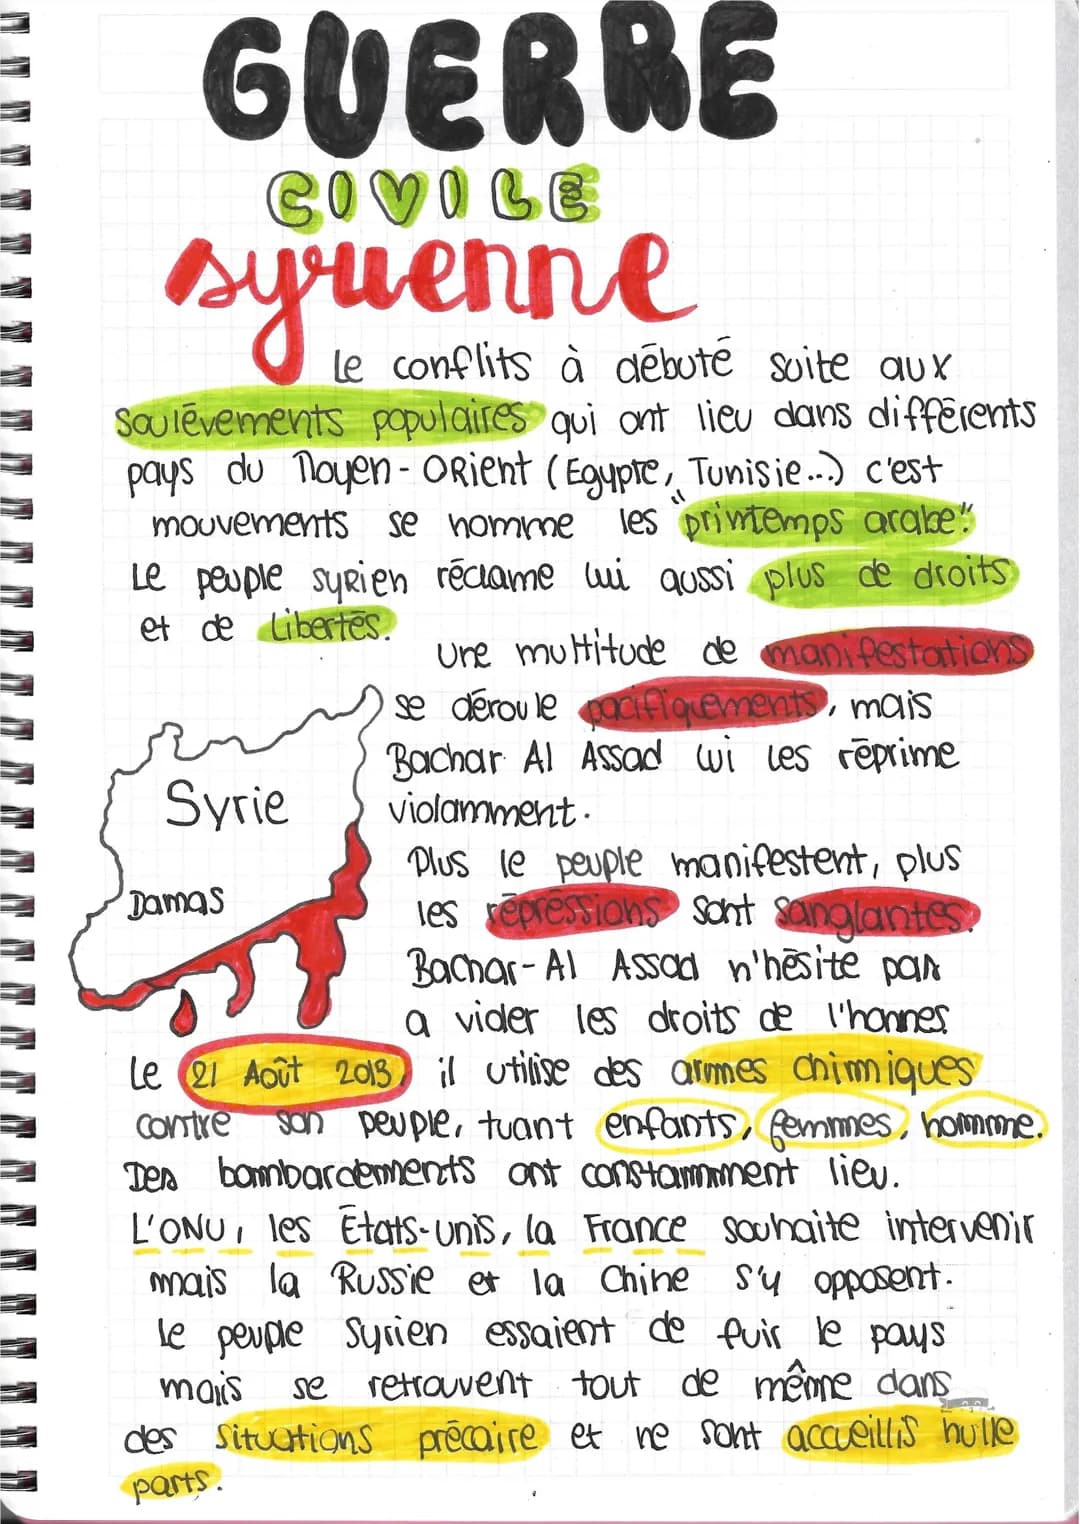 GUERRE
CIVILE
syrienne
Le conflits à débuté suite aux
soulévements populaires qui ont lieu dans différents
pays du Moyen-Orient (Egypte, Tunisie...) c'est
mouvements se nomme les "printemps arabe".
Le peuple syrien réclame lui aussi plus de droits
et de libertés.
Une multitude de manifestations
se déroule pacifiquements, mais
Bachar Al Assad lui les réprime
violamment.
Plus le peuple manifestent, plus
les répréssions sont sanglantes.
Bachar-Al Assad n'hésite pas
a vider les droits de l'honnes
Syrie
Damas
Le 21 Août 2013, il utilise des armes chimiques
contre son peuple, tuant enfants, femmes, homme.
Des bombardements ont constamment lieu.
L'ONU, les États-unis, la France souhaite intervenir
mais la Russie et la Chine s'y opposent.
Le peuple Syrien essaient de fuir le pays
mais se retrouvent tout de même dans
des situations précaire et ne sont accueillis nulle
parts.